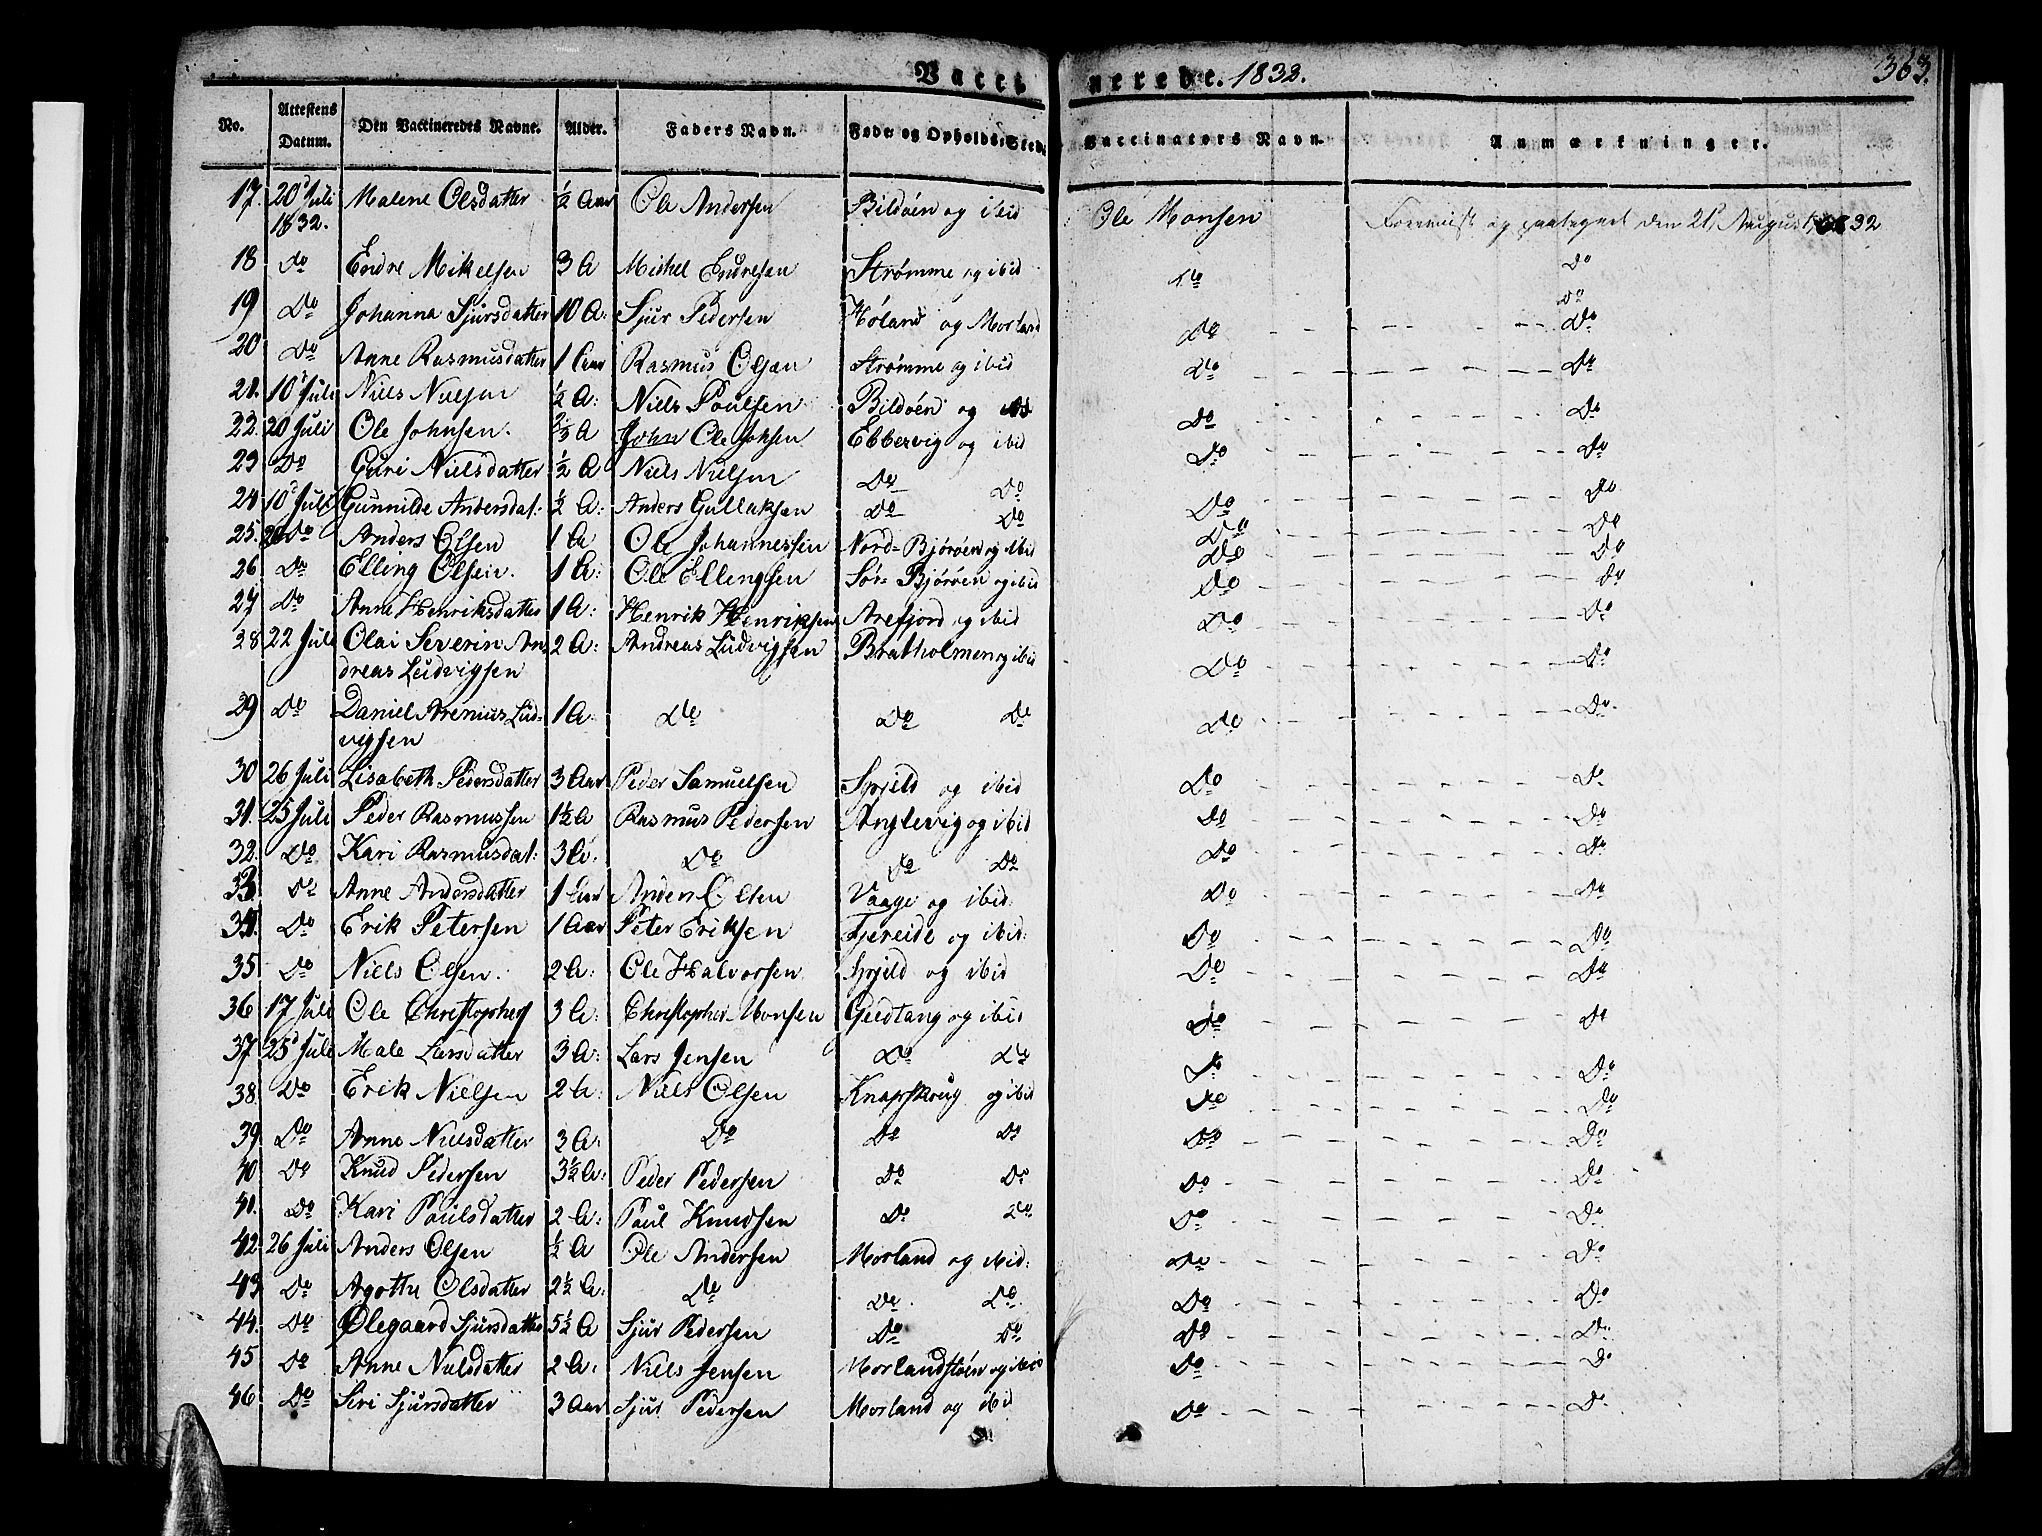 Vaccinerede. 1832. 363.
No. Attestens Datum. Den Vaccineredes Navne. Alder. Faders Navn. Føde- og Opholds-Sted. Vaccinators Navn. Anmærkninger.
17. 20d Juli Malene Olsdatter ½ Aar Ole Andersen Bildöen og ibid Ole Monsen Foreviist og paategnet den 21 August 1832
1832.
18 Do Endre Mikelsen 3 A Mishel Endresen Strømme og ibid Do Do
19 Do Johanna Sjursdatter 10 A: Sjur Pedersen Höland og Morland Do Do
20 Do Anne Rasmusdatter 1 Aar Rasmus Olsen Strømme og ibid Do Do
21. 10d Juli Niels Nielsen ½ A: Niels Poulsen Bildöen og ibid Do Do
22. 20 Juli Ole Johnsen. ⅔ A John Ole Johsen Ebbesvig og ibid Do Do
23 Do Guri Nielsdatter ½ A Niels Nielsen Do Do Do Do
24 10d Juli Gunnilde Andersdat: ½ A: Anders Gullaksen Do Do Do Do
25. 20 Do Anders Olsen 1 A Ole Johannessen Nord-Björöen og ibid Do Do
26 Do Elling Olsen. 1 A: Ole Ellingsen Sör-Björöen og ibid Do Do
27 Do Anne Henriksdatter 1 A: Henrik Henriksen Arefjord og ibid Do Do
28 22 Juli Olai Severin An- 2 A: Andreas Ludvigsen Bratholmen og ibid Do Do
dreas Ludvigsen
29 Do Daniel Arenius Lud- 1 A. Do Do Do Do Do
vigsen
30 26 Juli Lisabeth Pedersdatter 3 Aar Peder Samuelsen Spjeld og ibid Do Do
31. 25 Juli Peder Rasmussen 1½ A Rasmus Pedersen Anglevig og ibid Do Do
32. Do Kari Rasmusdat: 3 A. Do Do Do Do Do
33. Do Anne Andersdatter 1 Aar Anders Olsen Vaage og ibid. Do Do
34. Do Erik Petersen 1 Aar Peter Eriksen Fjereide og ibid: Do Do
35 Do Niels Olsen. 2 A: Ole Halvorsen Spjeld og ibid Do Do
36 17 Juli Ole Christophers 3 A: Christopher Monsen Geidtang og ibid Do Do
37 25d Juli Male Larsdatter 3 A: Lars Jensen Do Do Do Do
38. Do Erik Nielsen 2 A: Niels Olsen Knapskrug og ibid Do Do
39 Do Anne Nielsdatter 3 A: Do Do Do Do Do
40 Do Knud Pedersen 3½ A: Peder Pedersen Do Do Do Do
41. Do Kari Poulsdatter 2 A: Poul Knudsen Do Do Do Do
42. 26 Juli Anders Olsen ½ A Ole Andersen Morland og ibid: Do Do
43. Do Agothe Olsdatter 2½ A: Do Do Do Do Do
44. Do Ølegaard Sjursdatter 5½ A Sjur Pedersen Do Do Do Do
45 Do Anne Nielsdatter 2 A: Niels Jensen Morlandstöen og ibid Do Do
46 Do Siri Sjursdatter 3 Aar Sjur Pedersen Morland og ibid Do Do